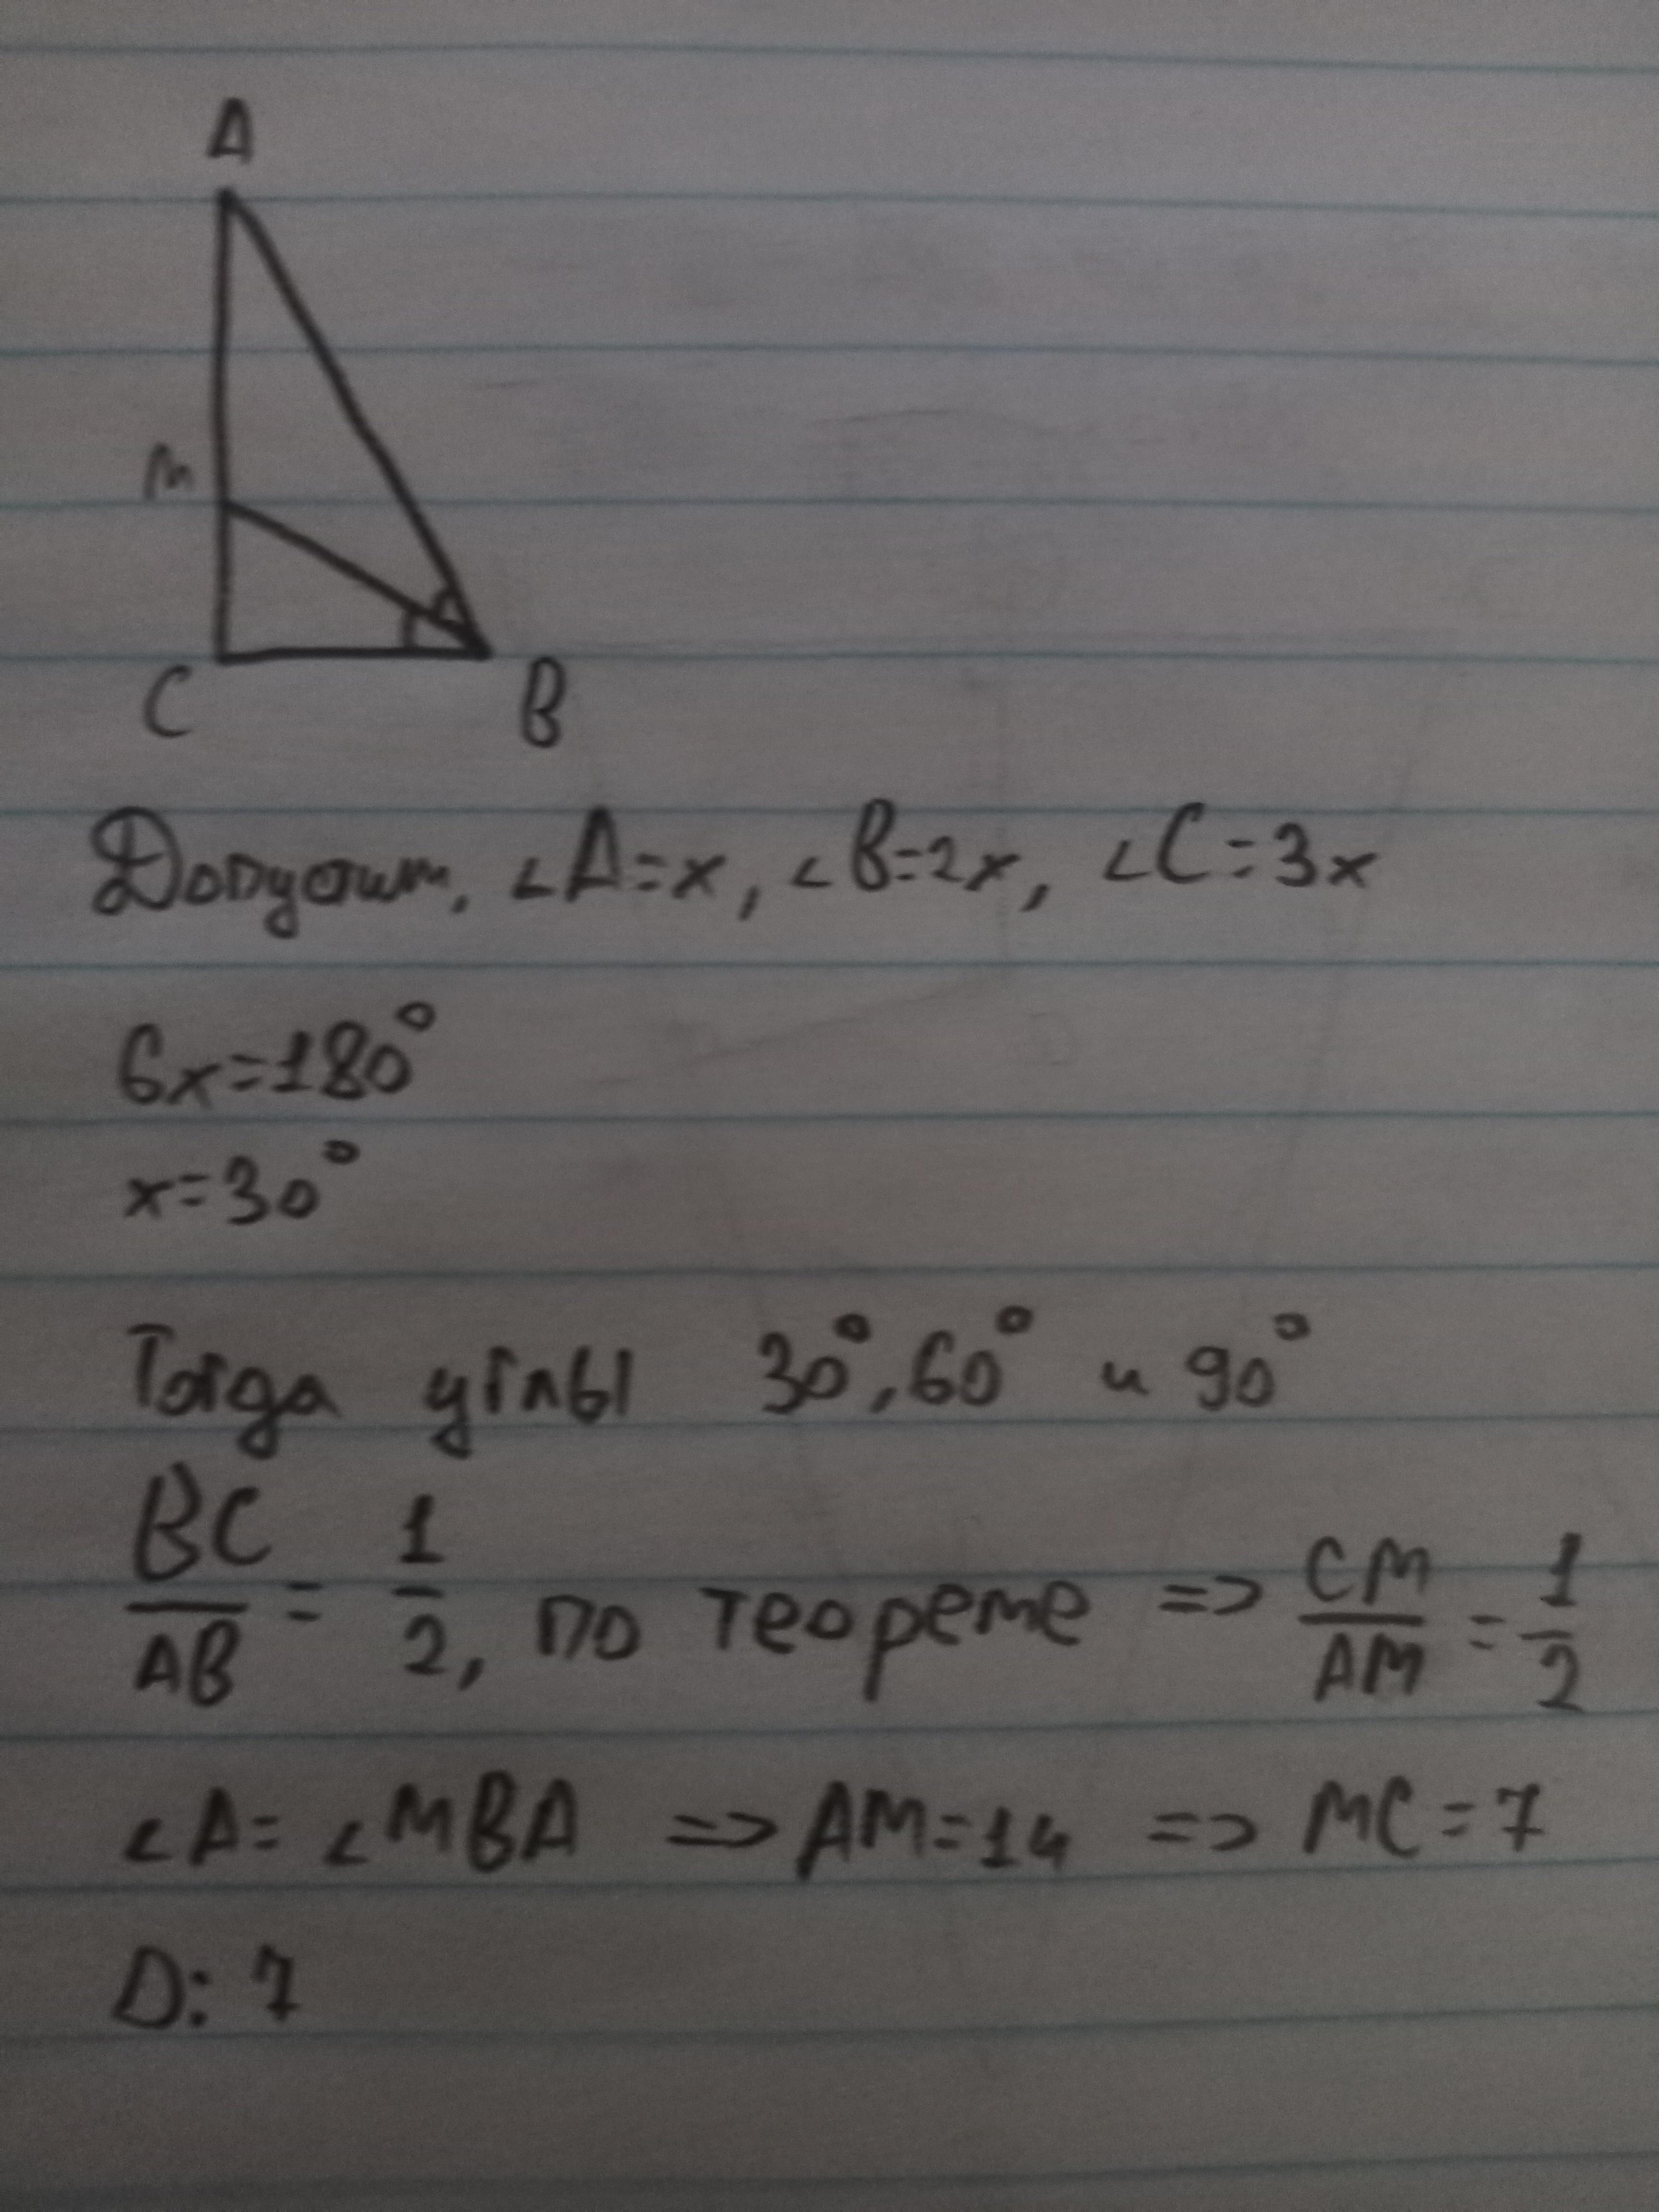 A
M
C B
Допустим, ∠A=x, ∠B=2x, ∠C=3x
6x=180°
x=30°
Тогда углы 30°, 60° и 90°
BC/AB = 1/2, по теореме => CM/AM = 1/2
∠A= ∠MBA => AM=14 => MC=7
D: 7